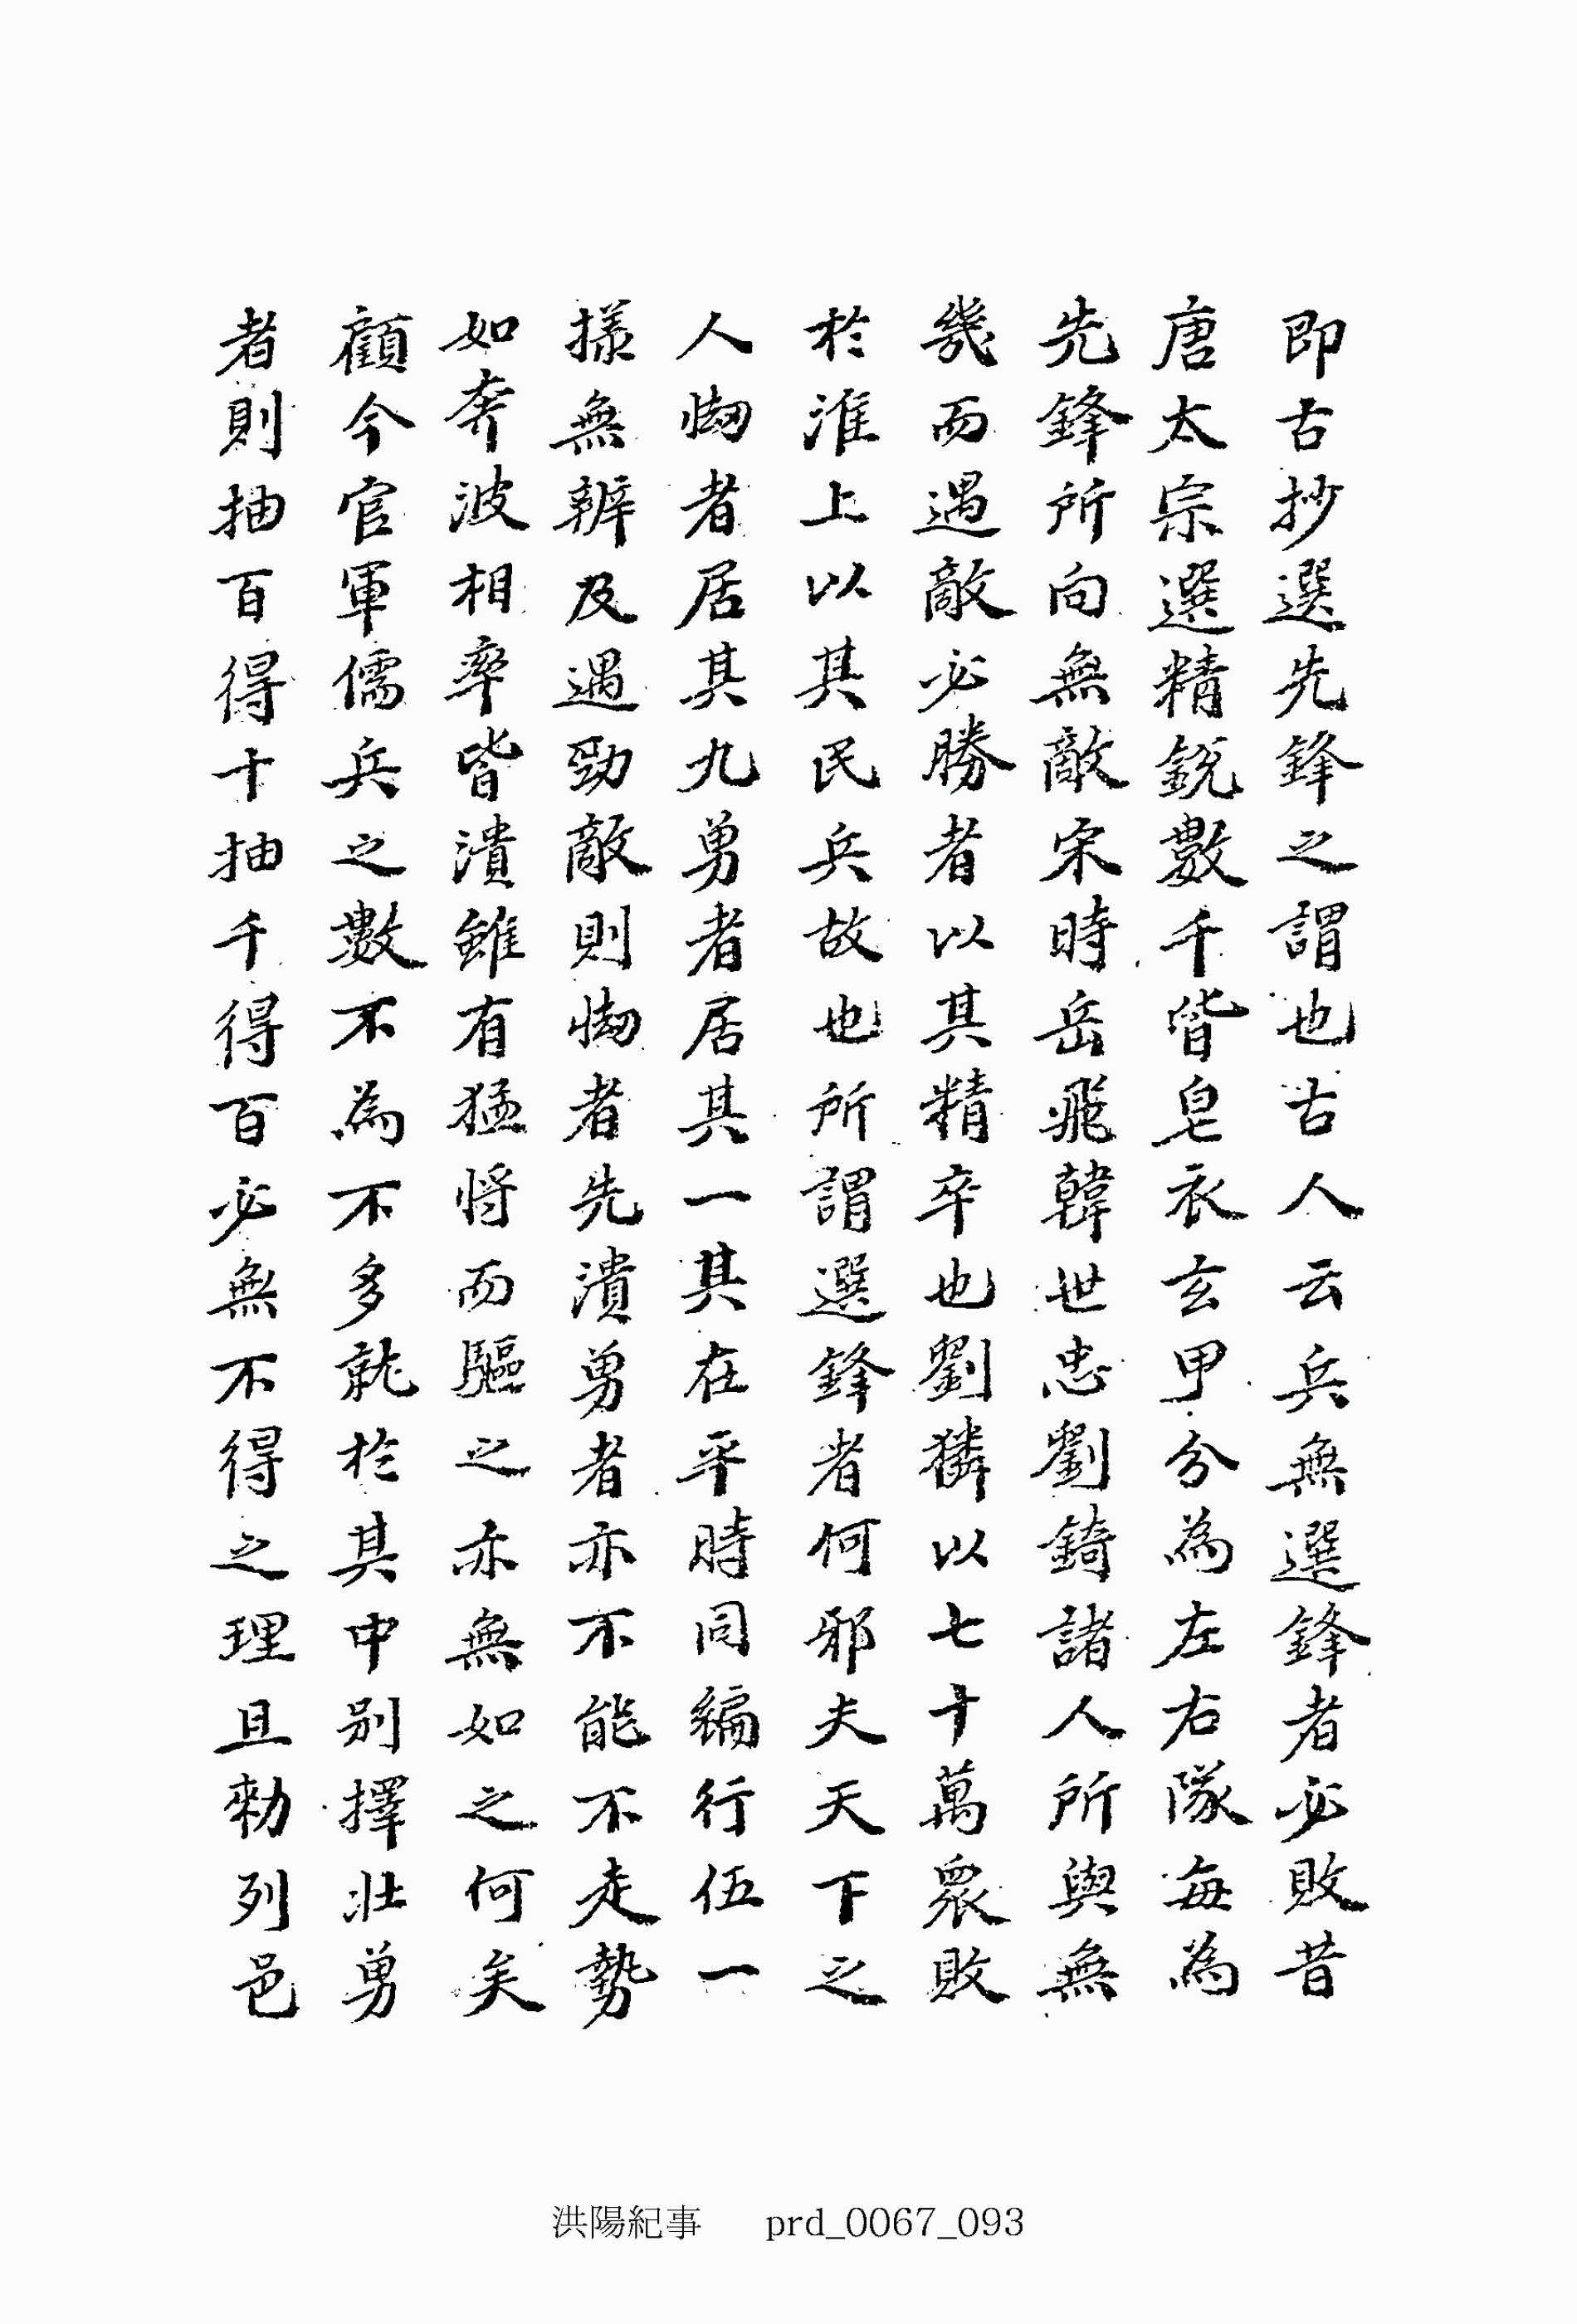 即古抄選先鋒之謂也古人云兵無選鋒者必敗昔
唐太宗選精銳數千皆皂衣玄甲分為左右隊每為
先鋒所向無敵宋時岳飛韓世忠劉錡諸人所與無
幾而遇敵必勝者以其精卒也劉獜以七十萬衆敗
於淮上以其民兵故也所謂選鋒者何邪夫天下之
人㤼者居其九勇者居其一其在平時同編行伍一
㨾無辨及遇勁敵則㤼者先潰勇者亦不能不走勢
如奔波相率皆潰雖有猛將而驅之亦無如之何矣
顧今官軍儒兵之數不為不多就於其中別擇壯勇
者則抽百得十抽千得百必無不得之理且勑列邑
洪陽紀事 prd_0067_093